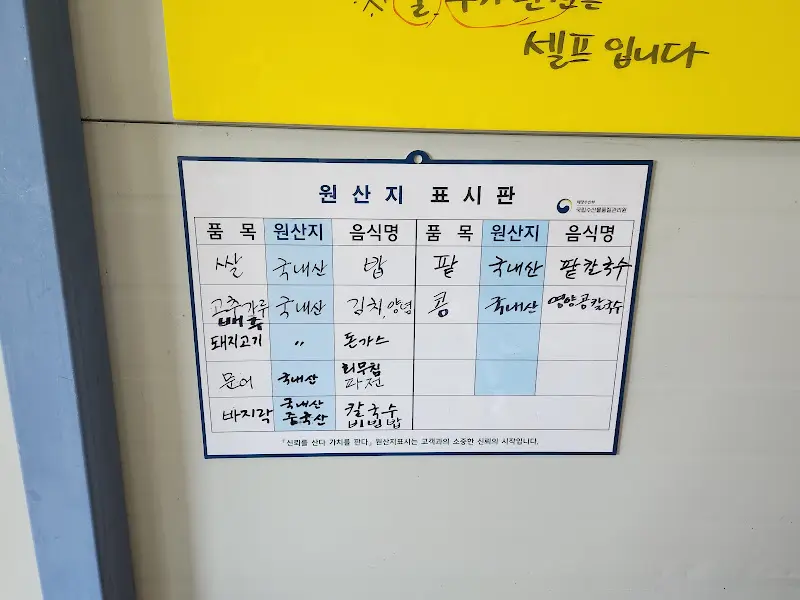 셀프 입니다
원산지 표시판
해양수산부
국립수산물품질관리원
품 목 원산지 음식명 품 목 원산지 음식명
쌀 국내산 밥 팥 국내산 팥칼국수
고추가루 국내산 김치,양념 콩 국내산 영양콩칼국수
배추
돼지고기 〃 돈가스
문어 국내산 회무침 파전
바지락 국내산 중국산 칼국수 비빔밥
「신뢰를 산다 가치를 판다」 원산지표시는 고객과의 소중한 신뢰의 시작입니다.